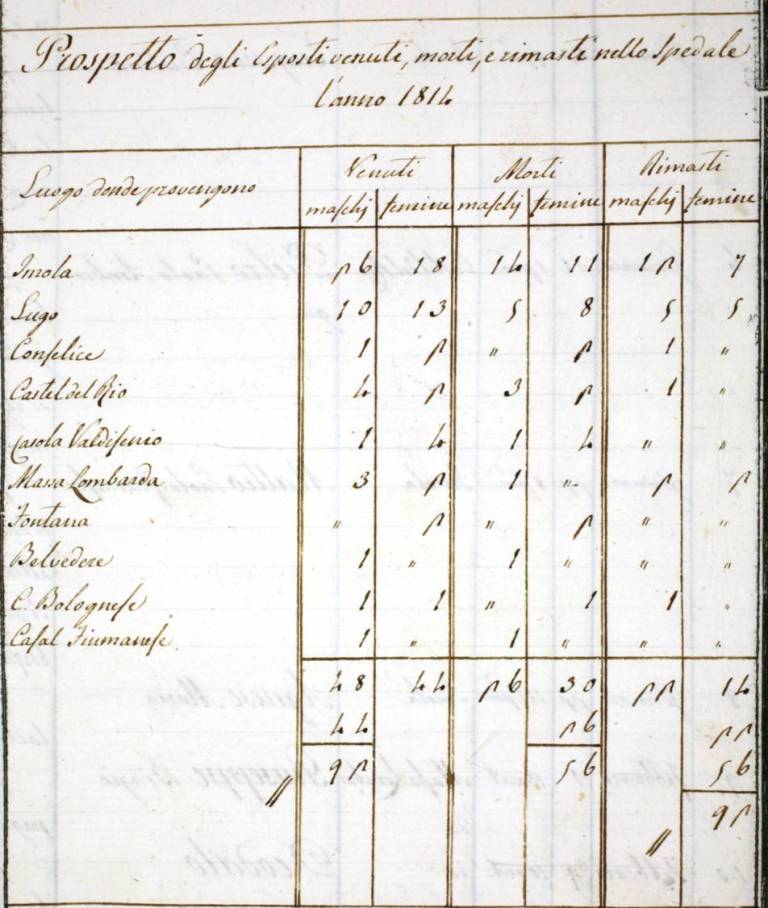 Prospetto degli Esposti venuti, morti, e rimasti nello Spedale
l'anno 1814
Luogo donde provengono Venuti Morti Rimasti
maschj femine maschj femine maschj femine
Imola 26 18 14 11 12 7
Lugo 10 13 5 8 5 5
Conselice 1 2 " 2 1 "
Castel del Rio 4 2 3 2 1 "
Casola Valdisenio 1 4 1 4 " "
Massa Lombarda 3 2 1 " 2 2
Fontana " 2 " 2 " "
Belvedere 1 " 1 " " "
C. Bolognese 1 1 " 1 1 "
Casal Fiumanese 1 " 1 " " "
48 44 26 30 22 14
44 26 22
92 56 56
92